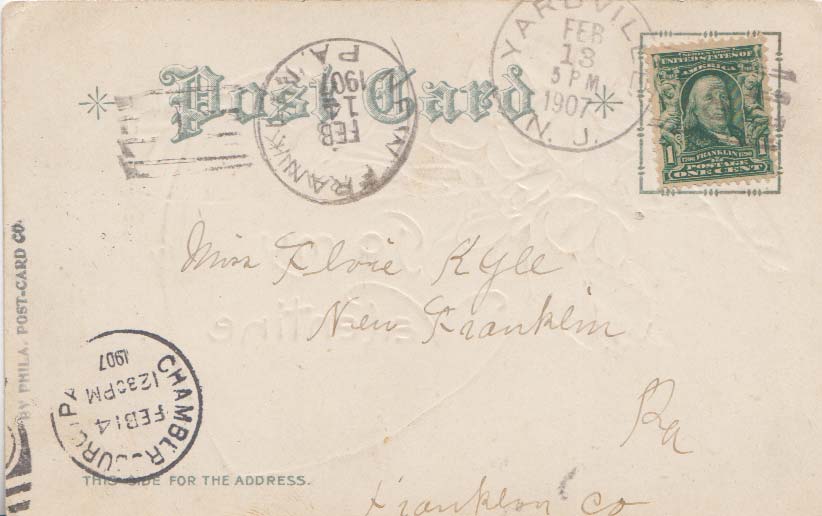 Post Card
YARDVILLE
FEB
13
5 PM
1907
N. J.
NEW FRANKLIN
FEB
14
1907
PA.
UNITED STATES OF
AMERICA
1 FRANKLIN 1
POSTAGE
ONE CENT
Miss Elvie Kyle
New Franklin
Pa
Franklin Co
CHAMBERSBURG PA
FEB 14
1230 PM
1907
BY PHILA. POST-CARD CO.
THIS SIDE FOR THE ADDRESS.